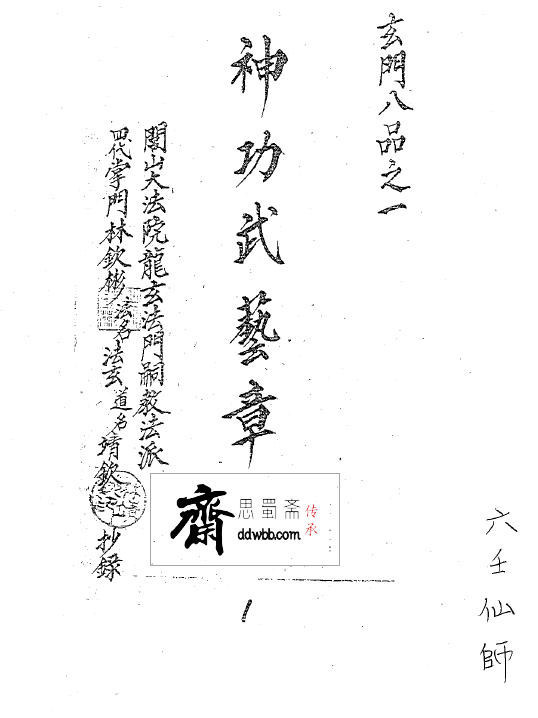 玄門八品之一
神功武藝章
閭山大法院龍玄法門嗣教法派
四代掌門林欽彬法名法玄道名靖欽抄錄
六壬仙師
齋
思蜀斋
ddwbb.com
传承
1